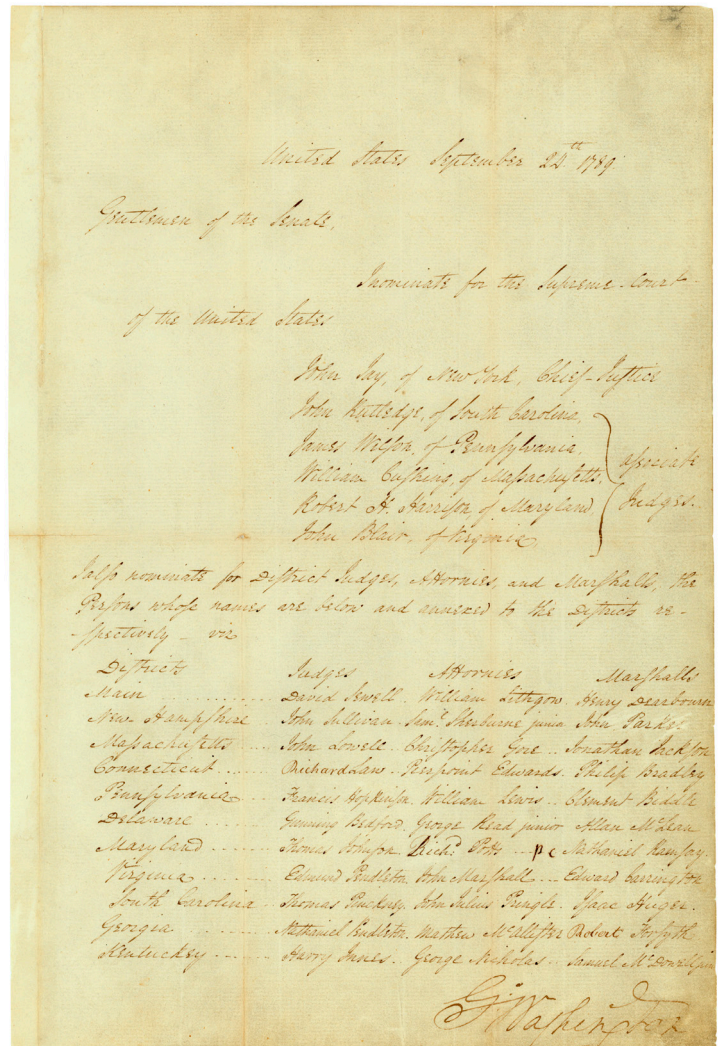 United States September 24th 1789.
Gentlemen of the Senate,
I nominate for the Supreme-Court
of the United States
John Jay, of New York, Chief-Justice
John Rutledge, of South Carolina,
James Wilson, of Pennsylvania,
William Cushing, of Massachusetts,
Robert H. Harrison, of Maryland,
John Blair, of Virginia,
associate
Judges.
I also nominate for District Judges, Attornies, and Marshalls, the
Persons whose names are below and annexed to the Districts re-
-spectively - viz
Districts Judges Attornies Marshalls
Main .......... David Sewell. William Lithgow. Henry Dearbourn
New Hampshire John Sullivan. Saml. Sherburne junr John Parker
Massachusetts .... John Lowell.. Christopher Gore.. Jonathan Jackson
Connecticut ....... Richard Law. Pierpoint Edwards. Philip Bradley
Pennsylvania ...... Francis Hopkinson. William Lewis.. Clement Biddle
Delaware ....... Gunning Bedford. George Read junior Allan McLean
Maryland ........ Thomas Johnson. Richd. Potts Nathaniel Ramsay.
Virginia ........ Edmund Pendleton. John Marshall... Edward Carrington
South Carolina .. Thomas Pinckney. John Julius Pringle. Isaac Huger.
Georgia ......... Nathaniel Pendleton. Mathew McAllister Robert Forsyth
Kentuckey ...... Harry Innes.. George Nicholas.. Samuel McDowell junr
G. Washington